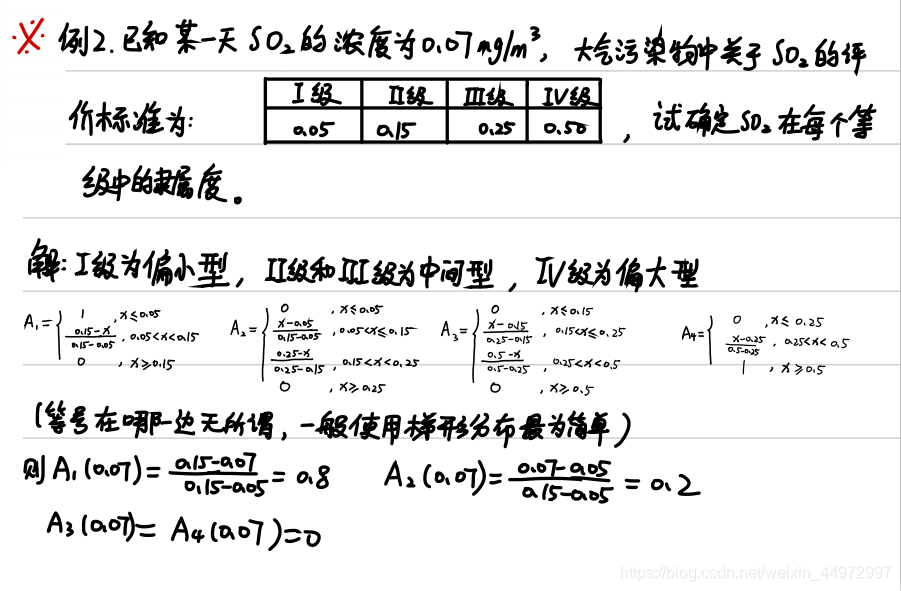 ※ 例2. 已知某一天 SO₂的浓度为0.07mg/m³, 大气污染物中关于SO₂的评
价标准为: , 试确定SO₂在每个等
I级 II级 III级 IV级
0.05 0.15 0.25 0.50
级中的隶属度。
解: I级为偏小型, II级和III级为中间型, IV级为偏大型
A₁={ 1 , x≤0.05
(0.15-x)/(0.15-0.05) , 0.05<x<0.15
0 , x≥0.15
A₂={ 0 , x≤0.05
(x-0.05)/(0.15-0.05) , 0.05<x≤0.15
(0.25-x)/(0.25-0.15) , 0.15<x<0.25
0 , x≥0.25
A₃={ 0 , x≤0.15
(x-0.15)/(0.25-0.15) , 0.15<x≤0.25
(0.5-x)/(0.5-0.25) , 0.25<x<0.5
0 , x≥0.5
A₄={ 0 , x≤0.25
(x-0.25)/(0.5-0.25) , 0.25<x<0.5
1 , x≥0.5
(等号在哪一边无所谓, 一般使用梯形分布最为简单)
则A₁(0.07)=(0.15-0.07)/(0.15-0.05)=0.8 A₂(0.07)=(0.07-0.05)/(0.15-0.05)=0.2
A₃(0.07)=A₄(0.07)=0
https://blog.csdn.net/weixin_44972997